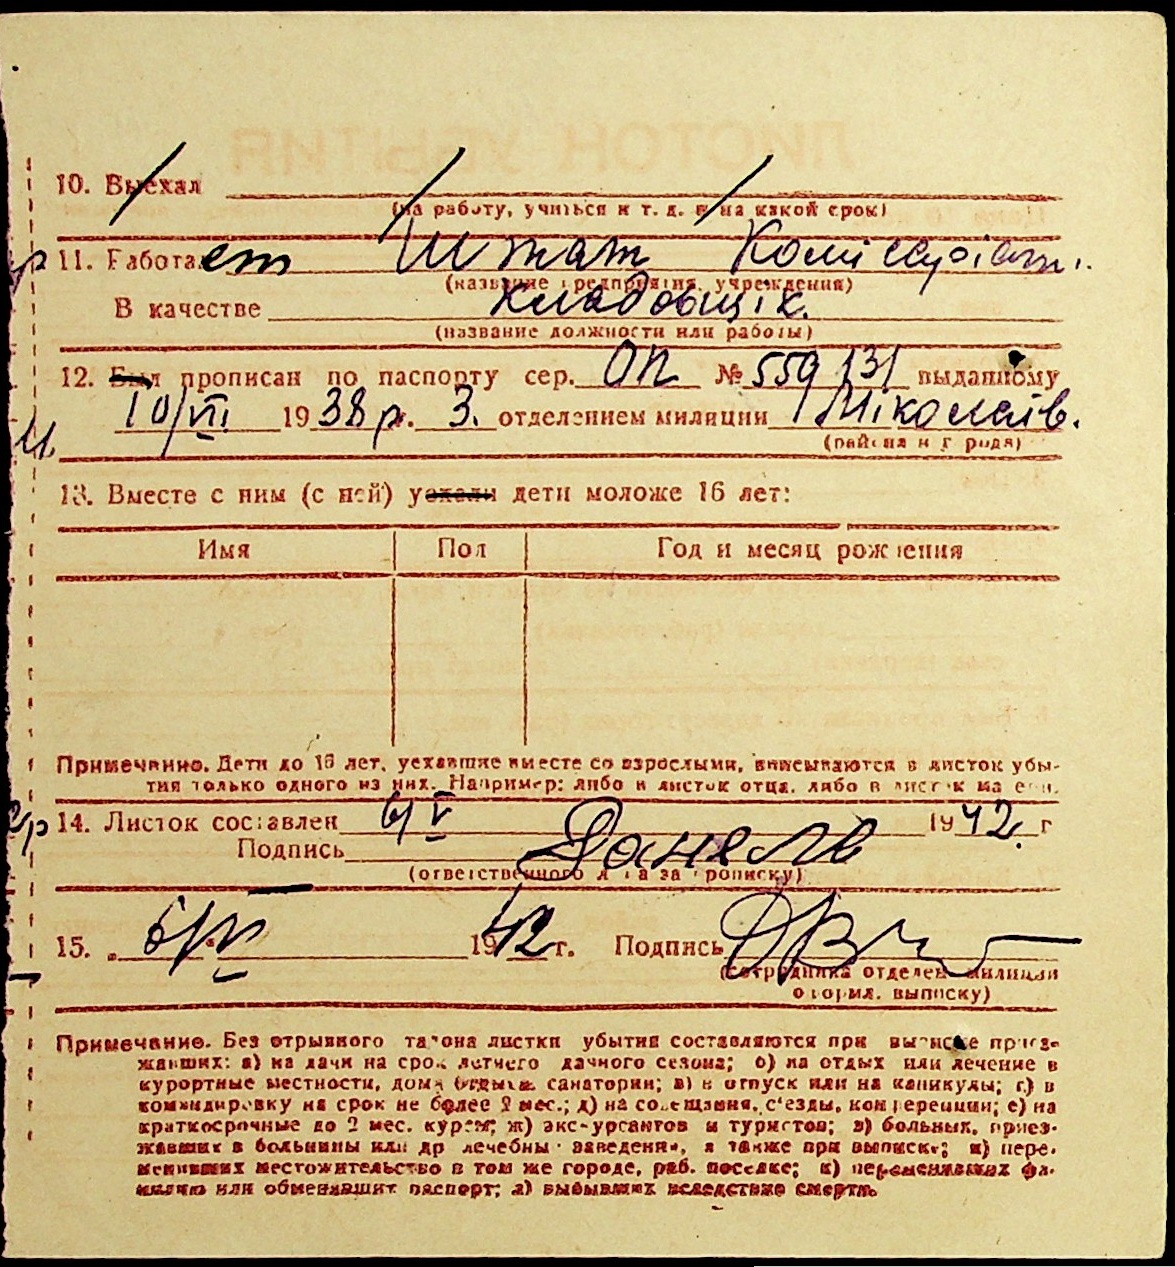 10. Выехал
(на работу, учиться и т. д. и на какой срок)
11. Работает Штат Комісаріат.
(название предприятия, учреждения)
В качестве кладовщік.
(название должности или работы)
12. Был прописан по паспорту сер. ОП № 559131 выданному
10/VII 1938 р. 3. отделением милиции Міколаїв.
(района и города)
13. Вместе с ним (с ней) уехали дети моложе 16 лет:
Имя Пол Год и месяц рождения
Примечание. Дети до 16 лет, уехавшие вместе со взрослыми, вписываются в листок убы-
тия только одного из них. Например: либо в листок отца, либо в листок матери.
14. Листок составлен 6/V 1942. г
Подпись
(ответственного лица за прописку)
15. 6/V 1942 г. Подпись
(сотрудника отделен. милиции
оформл. выписку)
Примечание. Без отрывного талона листки убытия составляются при выписке приез-
жавших: а) на дачи на срок летнего дачного сезона; б) на отдых или лечение в
курортные местности, дома отдыха, санатории; в) в отпуск или на каникулы; г) в
командировку на срок не более 2 мес.; д) на совещания, с'езды, конференции; е) на
краткосрочные до 2 мес. курсы; ж) экскурсантов и туристов; з) больных, приез-
жавших в больницы или др лечебны заведения, а также при выписке; и) пере-
менивших местожительство в том же городе, раб. поселке; к) переменивших фа-
милию или обменявших паспорт; л) выбывших вследствие смерти.